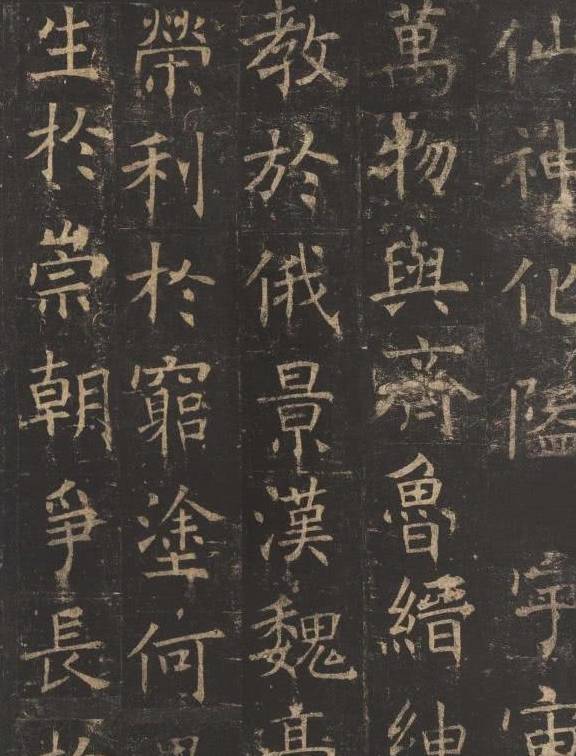 仙神化隘宇宙
萬物與齊魯縉紳
教於俄景漢魏高
榮利於窮塗何異
生於崇朝爭長於